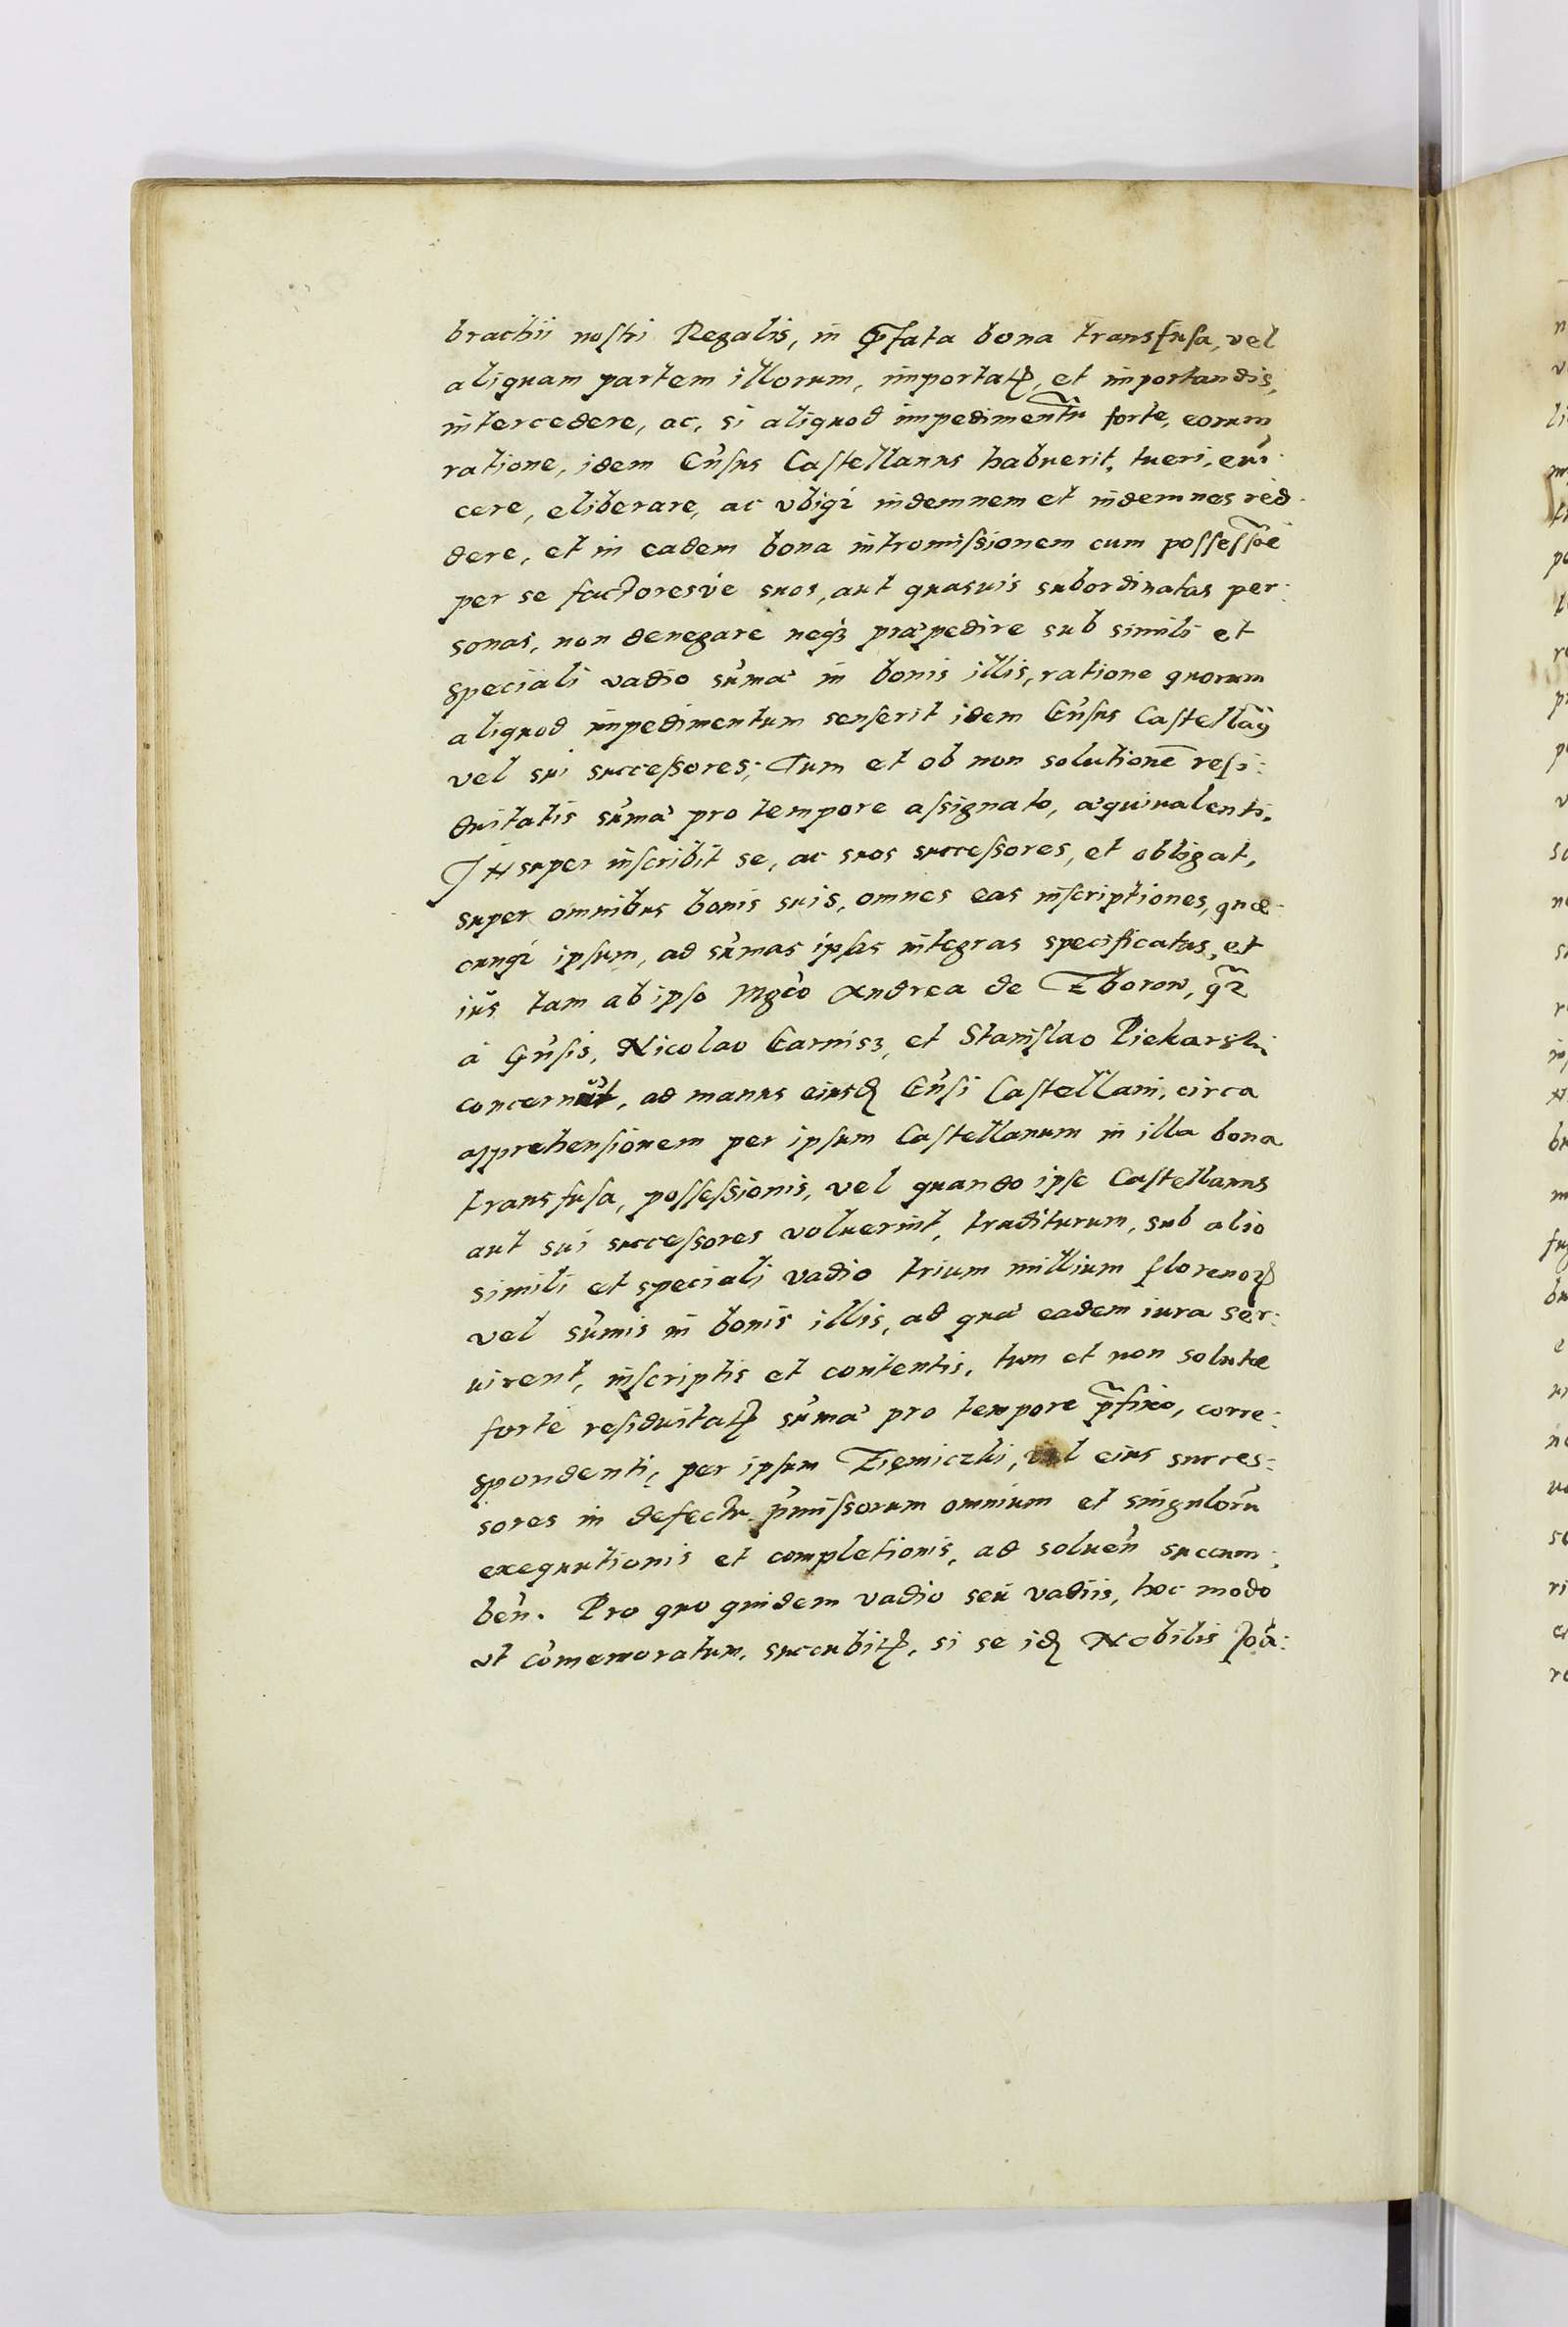 brachii nostri Regalis, in p̃fata bona transfusa, vel
aliquam partem illorum, importatꝭ, et importandis,
intercedere, ac, si aliquod impedimentũ forte, eorum
ratione, idem Gn̄sus Castellanus habuerit, tueri, eui-
cere, eliberare, ac vbiqꝫ indemnem et indemnes red-
dere, et in eadem bona intromissionem cum possessiõe
per se factoresvè suos, aut quasuis subordinatas per-
sonas, non denegare neqꝫ præpedire sub simili et
speciali vadio sum̄æ in bonis illis, ratione quorum
aliquod impedimentum senserit idem Gn̄sus Castellanꝰ
vel sui successores; Tum et ob non solutionē resi-
duitatis sum̄æ pro tempore assignato, æquiualenti.
INsuper inscribit se, ac suos successores, et obligat,
super omnibus bonis suis, omnes eas inscriptiones, quæ-
cunqꝫ ipsum, ad sum̄as ipsas integras specificatas, et
ius tam ab ipso Mgco Andrea de Zborow, q̃
à Gn̄sis, Nicolao Carnisz, et Stanislao Piekarski
concernūt, ad manus eiusdꝫ Gn̄si Castellani, circa
apprehensionem per ipsum Castellanum in illa bona
transfusa, possessionis, vel quando ipse Castellanus
aut sui successores voluerint, traditurum, sub alio
simili et speciali vadio trium millium florenoꝝ
vel sum̄is in bonis illis, ad quæ eadem iura ser-
uirent, inscriptis et contentis, tum et non solutæ
forte residuitatꝭ sum̄æ pro tempore p̃fixo, corre-
spondenti, per ipsum Ziemiczki, vel eius succes-
sores in defectu p̄missorum omnium et singulorū
exequutionis et completionis, ad soluen̄ succum-
ben̄. Pro quo quidem vadio seu vadiis, hoc modo
vt com̄emoratum, succubitꝭ, si se idꝫ Nobilis Joā-